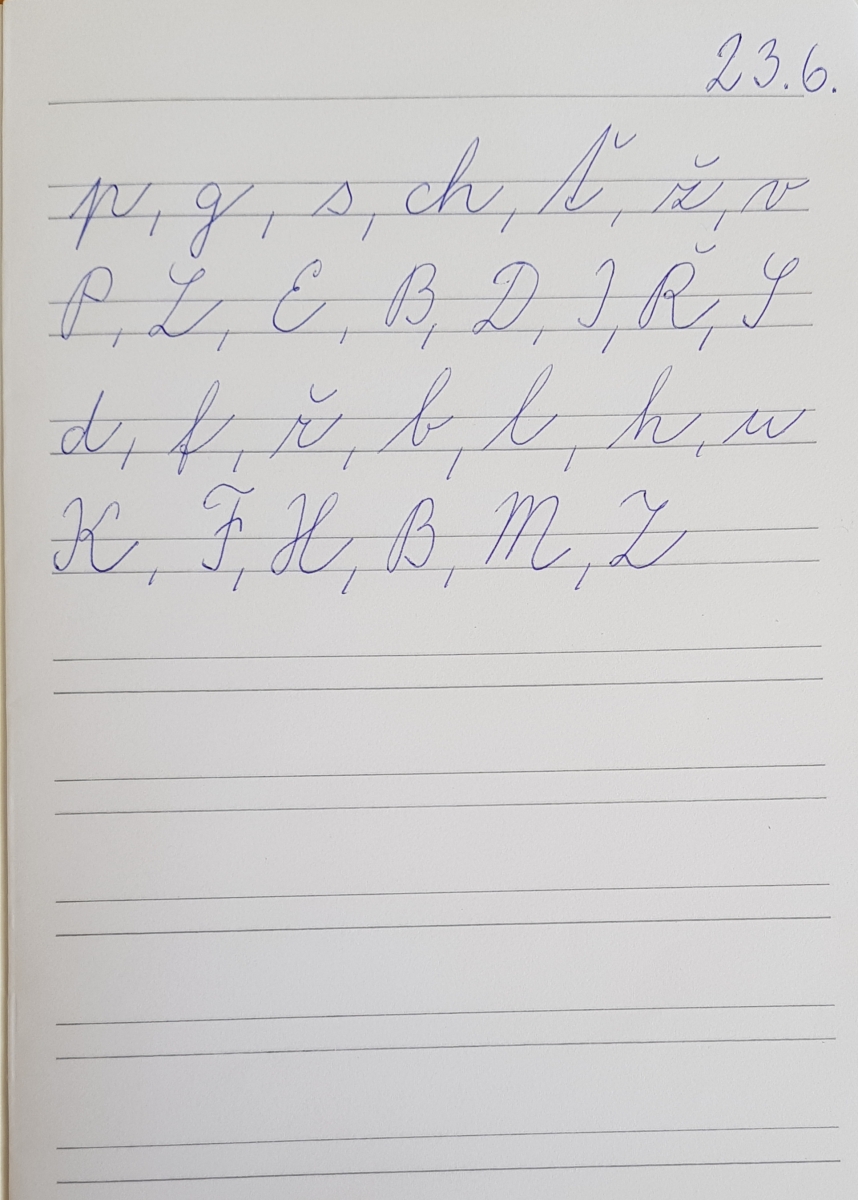 23.6.
p, g, s, ch, ť, ž, v
P, Z, E, B, D, I, Ř, S
d, f, ř, b, l, h, u
K, F, H, B, M, Z